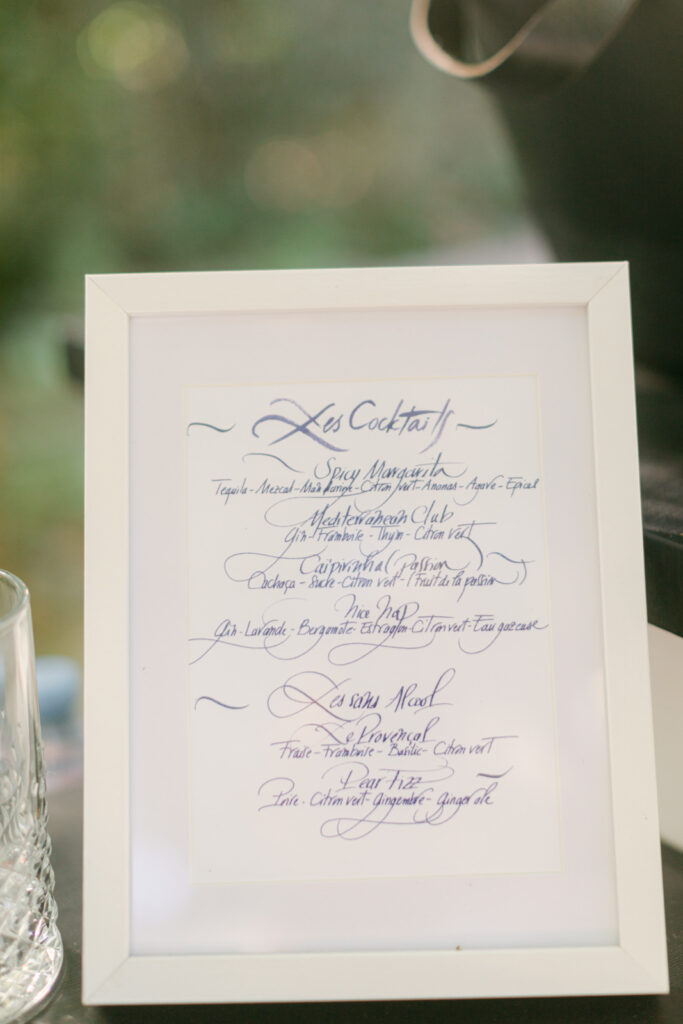 Les Cocktails
Spicy Margarita
Tequila - Mezcal - Mandarine - Citron vert - Ananas - Agave - Epical
Mediterranean Club
Gin - Framboise - Thym - Citron vert
Caïpirinha (Passion)
Cachaça - Sucre - Citron vert - (Fruit de la passion)
Nice Nap
Gin - Lavande - Bergamote - Estragon - Citron vert - Eau gazeuse
Les sans Alcool
Le Provençal
Fraise - Framboise - Basilic - Citron vert
Pear Fizz
Poire - Citron vert - Gingembre - Ginger ale